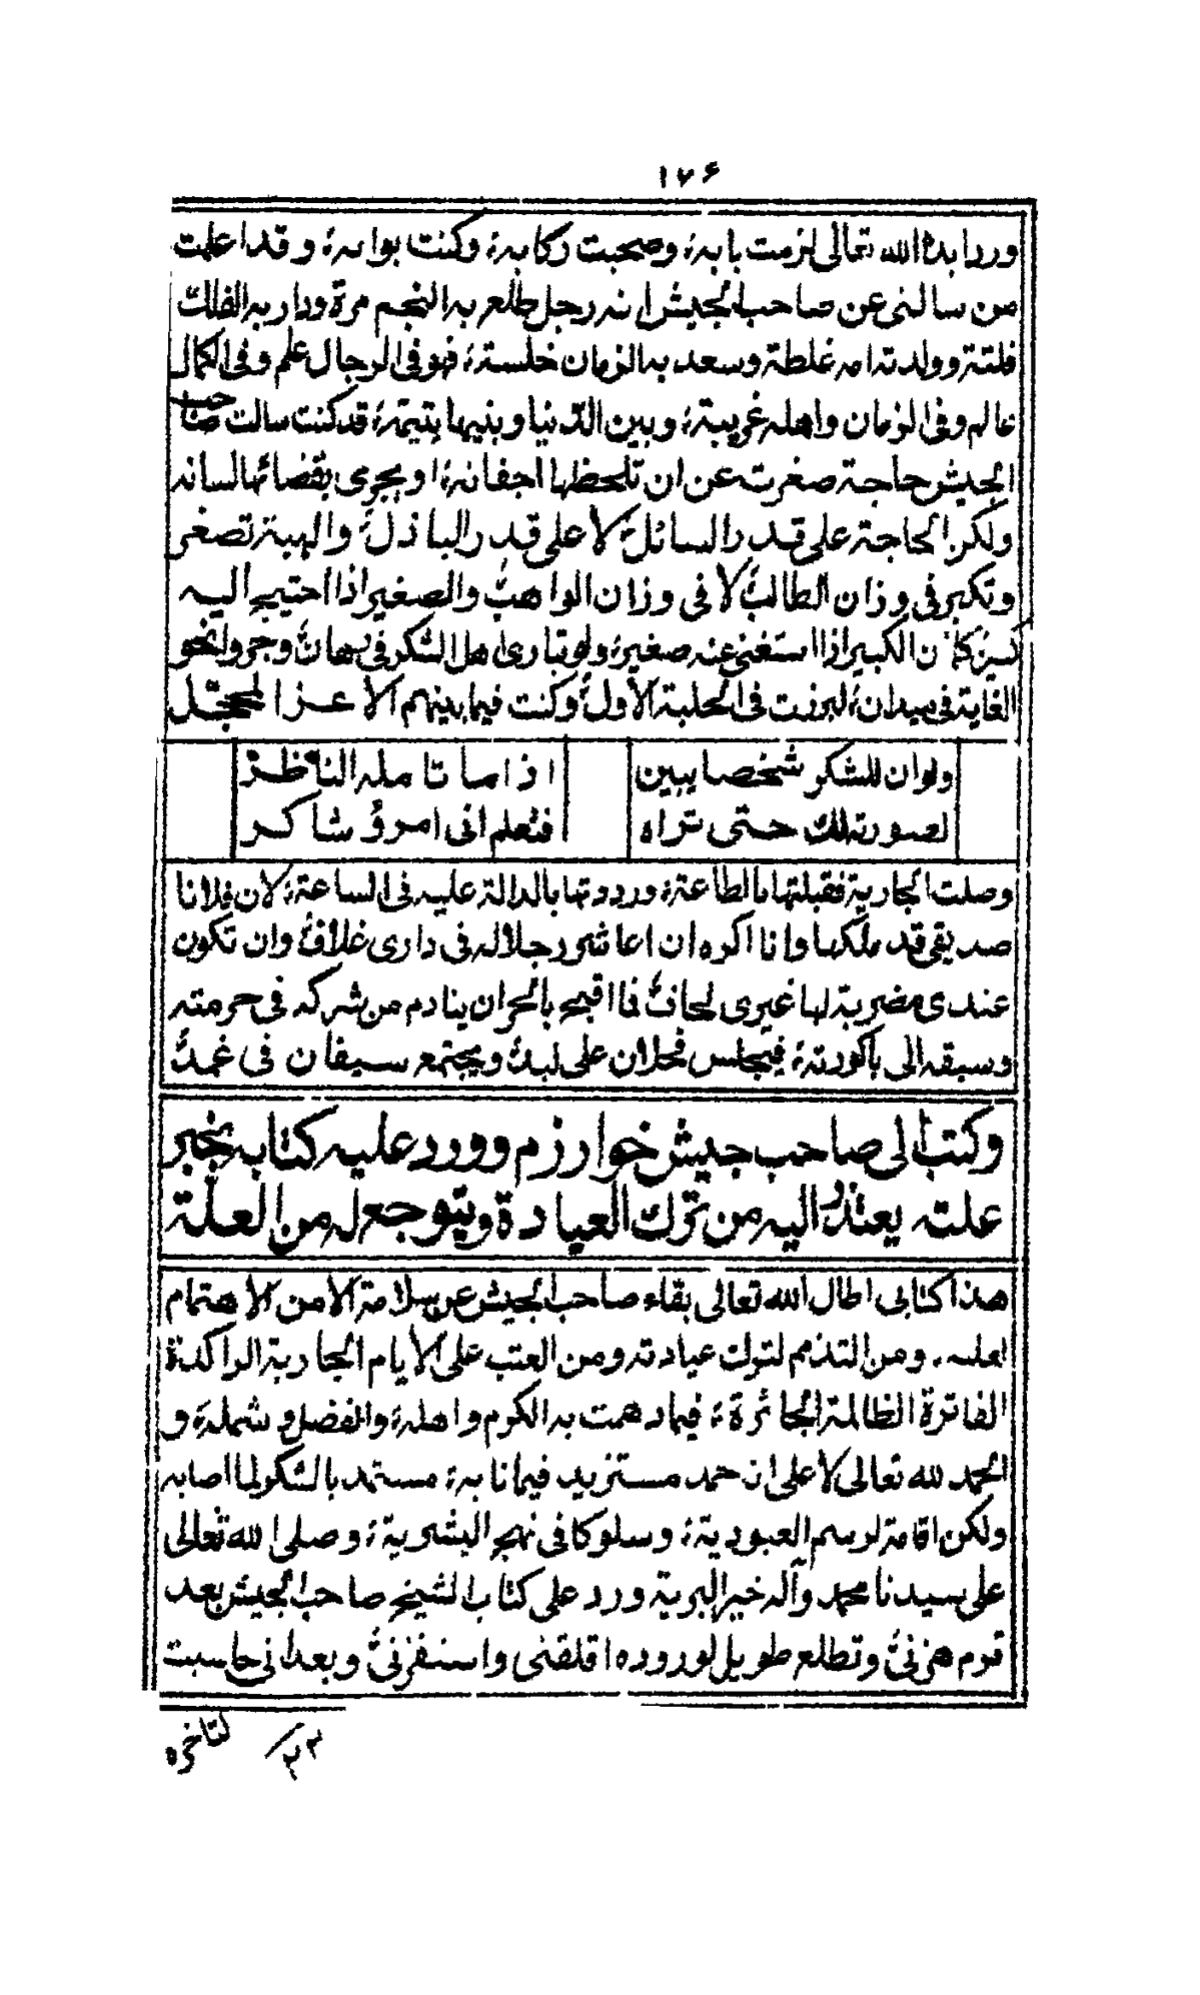 ١٧٦
وردا بدء الله تعالى لزمت بابهء وصحبت ركابهء وكنت بوابهء وقد اعلمت
من سالنى عن صاحب الجيش انه رجل طلع به النجم مرة ودار به الفلك
فلتة وولدته امه غلطة وسعد به الزمان خلسةء فهو فى الرجال علم وفى الكمال
عالم وفى الزمان واهله غريبةء وبين الدنيا وبنيها يتيمةء قد كنت سالت صاحب
الجيش حاجة صغرت عن ان تلحظها اجفانهء او يجرى بقضائها لسانه
ولكن الحاجة على قدر السائلء لا على قدر الباذلء والهبة تصغر
وتكبر فى وزان الطالبء لا فى وزان الواهبء والصغير اذا احتيج اليه
كبير كما ن الكبير اذا استغنى عنه صغيرء ولو تبارى اهل الشكر فى رهانء وجروا نحو
الغاية فى ميدانء لبرزت فى الحلبة الاولء وكنت فيما بينهم الاغر المحجّل
ولو ان للشكر شخصا يبين اذا ما تامله الناظر
لصورته لك حتى تراه فتعلم انى امرؤ شاكر
وصلت الجارية فقبلتها بالطاعةء ورددتها بالدالة عليه فى الساعةء لان فلانا
صديقى قد ملكها وانا اكره ان اعاشر رجلا له فى دارى غلافء وان تكون
عندى مضربة لها غيرى لحافء فما اقبح بالحر ان ينادم من شركه فى حرمته
وسبقه الى باكورتهء فيجلس فحلان على لبدء ويجتمع سيفان فى غمدء
وكتب الى صاحب جيش خوارزم وورد عليه كتابه بخبر
علته يعتذر اليه من ترك العيادة ويتوجع له من العلة
هذا كتابى اطال الله تعالى بقاء صاحب الجيش عن سلامة الا من الاهتمام
لعلته. ومن التذمم لترك عيادته ومن العتب على الايام الجارية الراكدة
الفاترة الظالمة الجائرةء فيما دهمت به الكرم واهلهء والفضل وشملهء و
الحمد لله تعالى لا على ان حمد مستزيد فيما نابهء مستمد بالشكر لما اصابه
ولكن اقامة لرسم العبوديةء وسلوكا فى نهج البشريةء وصلى الله تعالى
على سيدنا محمد وآله خير البرية ورد على كتاب الشيخ صاحب الجيش بعد
قرم هزنىء وتطلع طويل لوروده اقلقنى واستفزنىء وبعد انى حاسبت
لتاخره
٢٣